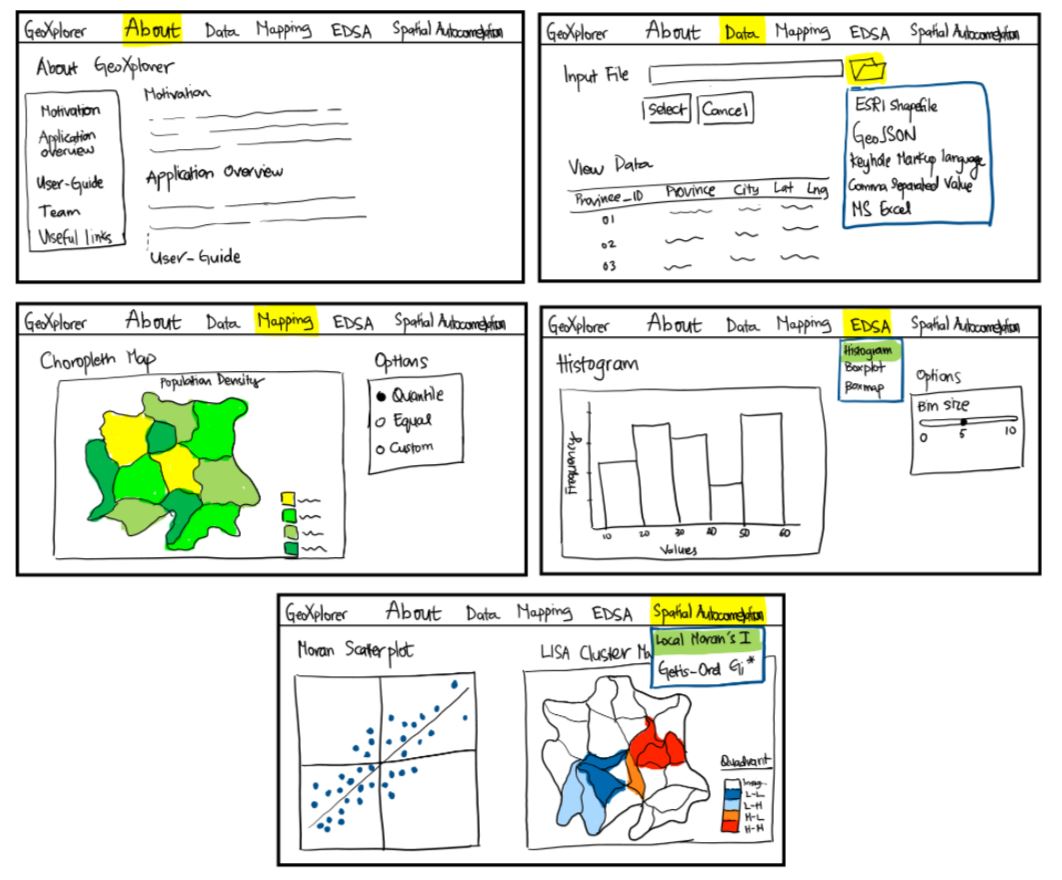 GeoXplorer About Data Mapping EDSA Spatial Autocorrelation
About GeoXplorer
Motivation
Application overview
User-Guide
Team
Useful links
Motivation
Application Overview
User-Guide
GeoXplorer About Data Mapping EDSA Spatial Autocorrelation
Input File
Select Cancel
ESRI Shapefile
GeoJSON
Keyhole Markup language
Comma Separated Value
MS Excel
View Data
Province_ID Province City Lat Lng
01
02
03
GeoXplorer About Data Mapping EDSA Spatial Autocorrelation
Choropleth Map
Population Density
Options
Quantile
Equal
Custom
GeoXplorer About Data Mapping EDSA Spatial Autocorrelation
Histogram
Boxplot
Boxmap
Histogram
Frequency
10 20 30 40 50 60
Values
Options
Bin size
0 5 10
GeoXplorer About Data Mapping EDSA Spatial Autocorrelation
Local Moran's I
Getis-Ord Gi*
Moran Scatterplot
LISA Cluster Ma
Quadrant
Insig.
L-L
L-H
H-L
H-H